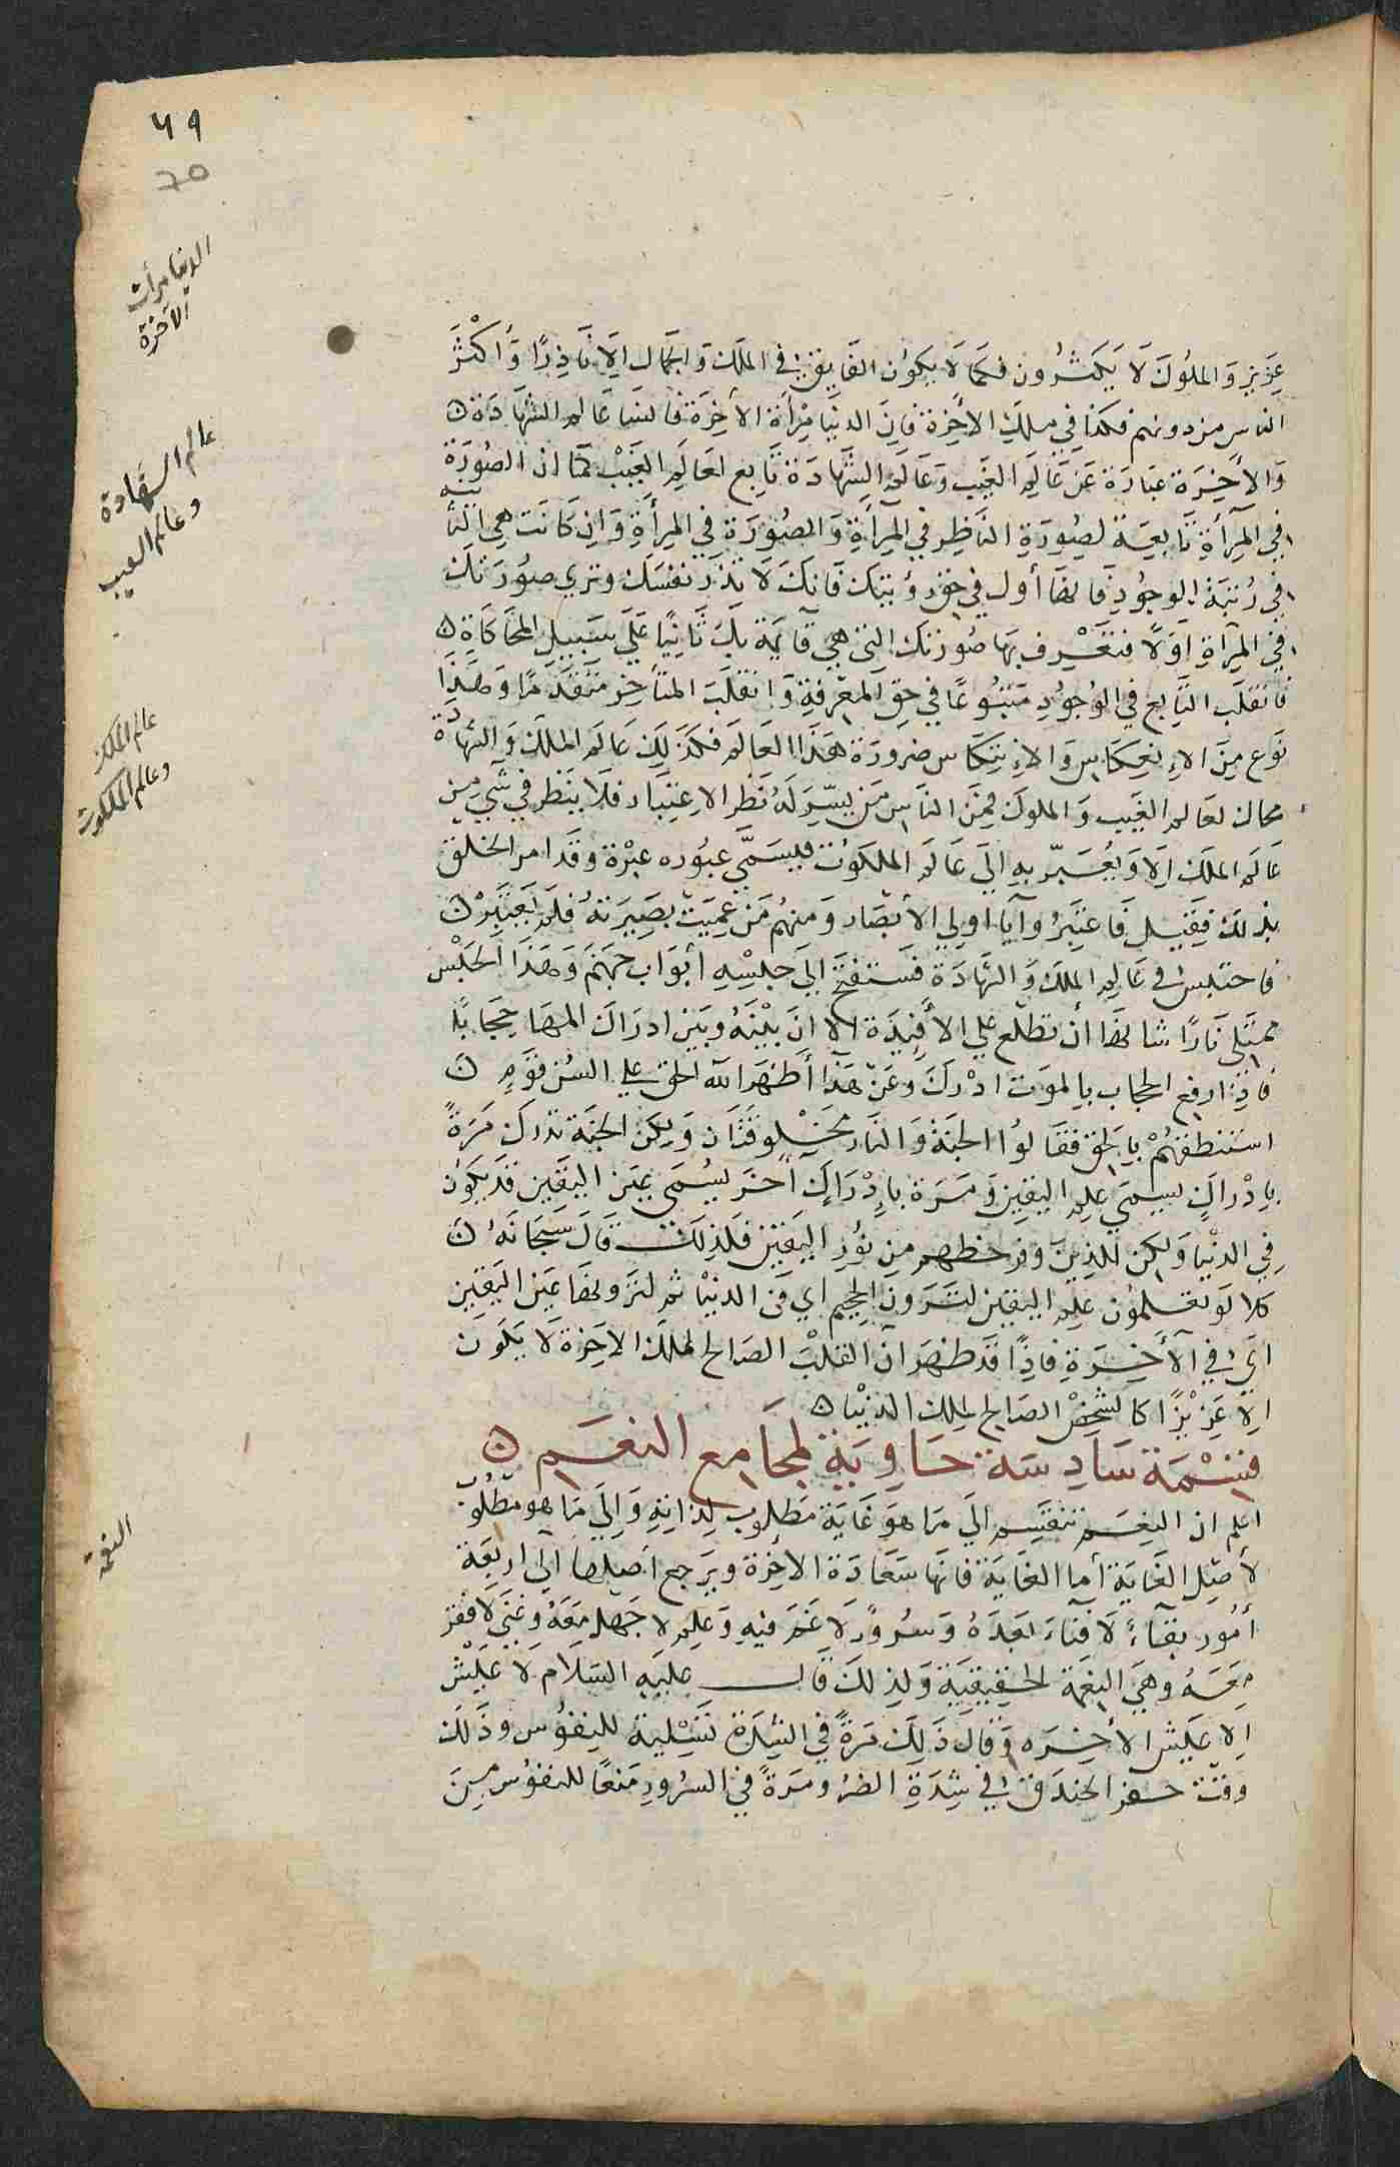 ٧٩
70
الدنيا مرأت
الآخرة
عالم الشهادة
وعالم الغيب
عالم الملك
وعالم الملكوت
النعمة
عَزِيز وَالملُوكَ لَا يَكثرُون فكمَا لَا يكوُن الفَايق في الملك وَالجمال الا نَاذِرًا وَأكْثَرَ
الناس من دونهم فكذا في ملك الأخِرة فإنَ الدنيا مِرْأة الأخِرَة فالدنيا عَالم الشهَادَة ن
وَالأخِيرَة عبَارَة عَن عَالمِ الغيب وَعَالَم الشَهَادَة تَابع لعَالَمِ الغَيبْ كمَا ان الصُورَة
في المِرأةِ تَابعَة لصُورَةِ النَاظِر في المِرأةِ وَالصُوُرَة في المِرأَةِ وَان كَانَت هي الثانيه
في رُتبَة الوجُودِ فَانهَا أول في حق رؤيتك فَانكَ لَا تَرَ نفسَك وتري صوُرَتك
في المِرآةِ اوَلًا فتعْرف بهَا صُورَتك التي هي قآيمة بكَ ثَانيًا عَلَى سَبيلِ المحَاكَاةِ ن
فَانقلَب التَابع في الوُجوُدِ متبُوعًا في حق المعْرفةِ وَانقلَبَ المتأخِر متقَدمًا وَهَذا
نوَع مِنَ الاِنعِكَاسِ وَالاِنتكَاس ضرورَة هَذا العَالَم فكذَلِكَ عَالَم الملك وَالشهادَة
محاك لعَالم الغَيب وَالملوك فمِنَ النَاسِ مَن يسّرَ لَهُ نَظر الاعِتِبَار فلَا ينَظر في شي مِن
عَالَم الملك إلَا وَيُعَبّر بهِ إلى عَالَمَ الملكوُت فيسَمَّى عبُوره عبْرة وقد امر الخلق
بذلك فقيل فَاعتبرُوآ يَا اولي الأبصَار وَمنهُم مَن عميَت بصَيرتهُ فلَم يَعتَبرْ ن
فاحتبس في عَالم الملك وَالشهَادَة فَستفتحَ الى حبسْهِ أبْوَاب جهَنم وَهَذَا الحَبْس
ممتلى نَارًا شانهَا أن تطّلع على الأفئِدَة الا انَ بيْنَهُ وبَين ادرَاك المهَا حِجَابًا
فَاِذَا رفع الحجاب بالموَت ادْركَ وعَنْ هَذا أظهَر الله الحق على السُن قوَمٍ ن
استنطقهُمْ بالحَق فقَالوُا الجنَة وَالنار مخَلوقتَان وَلكن الجنَة تدرَك مَرَةً
بادْراكٍ يسمى علم اليقين وَمَرَة بإدْرَاكٍ اخَر يُسْمَى عيَن اليَقين قد يكوُن
في الدنْيا وَلكن للذينَ وفر حظهم من نوُرِ اليَقينْ فلَذلكَ قَالَ سبحَانَهُ ن
كلا لَو تعلموُن علِم اليقين لتَرَونَ الجحيم اي في الدنيا ثم لترَونهَا عيَن اليَقين
ايْ في الأخِرَةِ فاذِاً قدَ ظهَر انَ القلْبَ الصَالح لملك الاخِرة لَا يكوَن
الا عَزِيزًا كالشخص الصَالح لملك الدنيا ن
قسْمَة سَادِسَة حَاوِيَة لمجَامع النعَم ن
اعلم ان النِعَم تنقَسِم الىَ مَا هوَ غَايَة مَطلوب لِذاتهِ وَإلَى مَا هو مطلُوب
لأجل الغَايَة أما الغَايَة فانهَا سَعَادَة الاخِرة ويرَجع أصلها الى اربَعَة
أمُور بقَآءً لَا فنَاءَ بَعدَهُ وَسرُورً لَا غَم فيهِ وَعلِم لا جَهل مَعَهُ وغنًى لا فقر
مَعَهُ وهيَ النِعَمَة الحقِيقيَة وَلذِلكَ قَال عليَه السَلَام لَا عيَش
الا عيَش الأخِرَه وَقَال ذَلِكَ مَرةً في الشِدَةِ تَسْليَة للنفوُس وذَلكَ
وقتَ حَفر الخندَق في شِدَةِ الضُر ومرَةً في السرُورِ مَنعًا للنفوُس مِنَ